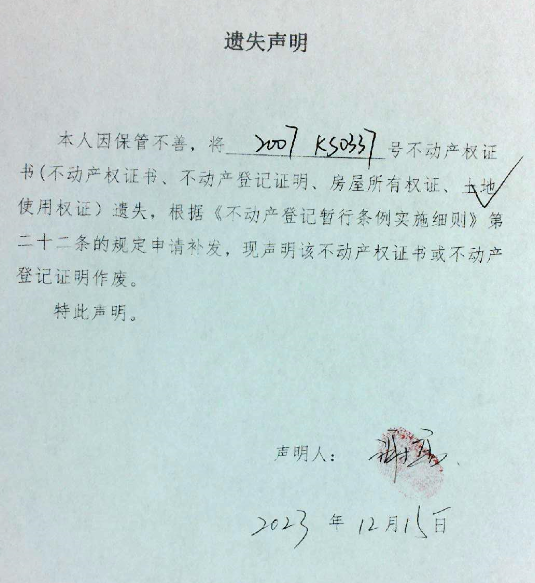 遗失声明
本人因保管不善，将 2007 KS0337 号不动产权证
书(不动产权证书、不动产登记证明、房屋所有权证、土地
使用权证）遗失，根据《不动产登记暂行条例实施细则》第
二十二条的规定申请补发，现声明该不动产权证书或不动产
登记证明作废。
特此声明。
声明人：
2023 年 12月15日